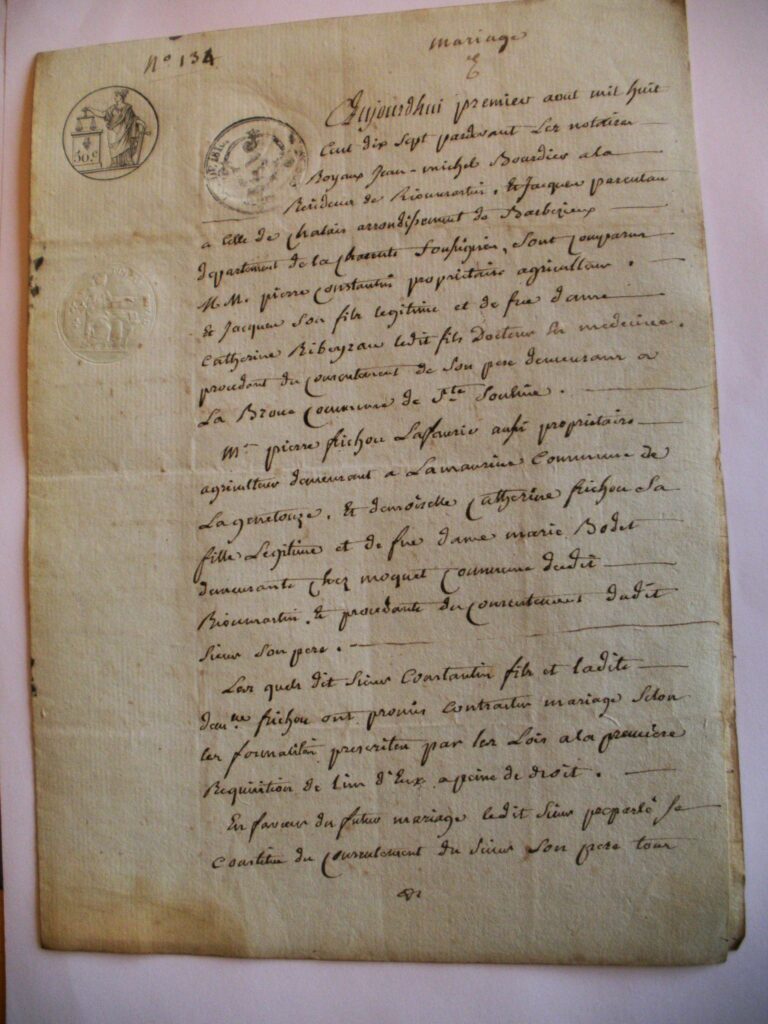 N° 134
mariage
50 c
Aujourdhui premier aout mil huit
Cent dix Sept pardevant Les notaires
Royaux Jean-michel Bourdier a la
Residence de Rioumartin, Et Jacques
a celle de Chalais arrondissement de Barbezieux
departement de la Charente Soussignés, Sont Comparus
M.M. pierre Constantin propriétaire agriculteur.
Et Jacques Son fils legitime et de fue dame
Catherine Ribeyrau ledit fils Docteur En medecine.
procedant du Consentement de Son pere demeurant a
La Broue Commune de Ste Souline.
Mr. pierre frichou Lafaurie aussi proprietaire
agriculteur demeurant a Lamaurine Commune de
Lagenetouze, Et demoiselle Catherine frichou Sa
fille Legitime et de fue dame marie Bodet
demeurante chez moquet Commune dudit
Rioumartin, Et procedante du Consentement dudit
Sieur Son pere.
Les quels dit Sieur Constantin fils et ladite
demlle frichou ont promis contracter mariage Selon
les formalités prescrites par les Lois a la premiere
Requisition de l'un d'Eux a peine de droit.
En faveur du futur mariage ledit Sieur Se
Constitue du Consentement du Sieur Son pere tous